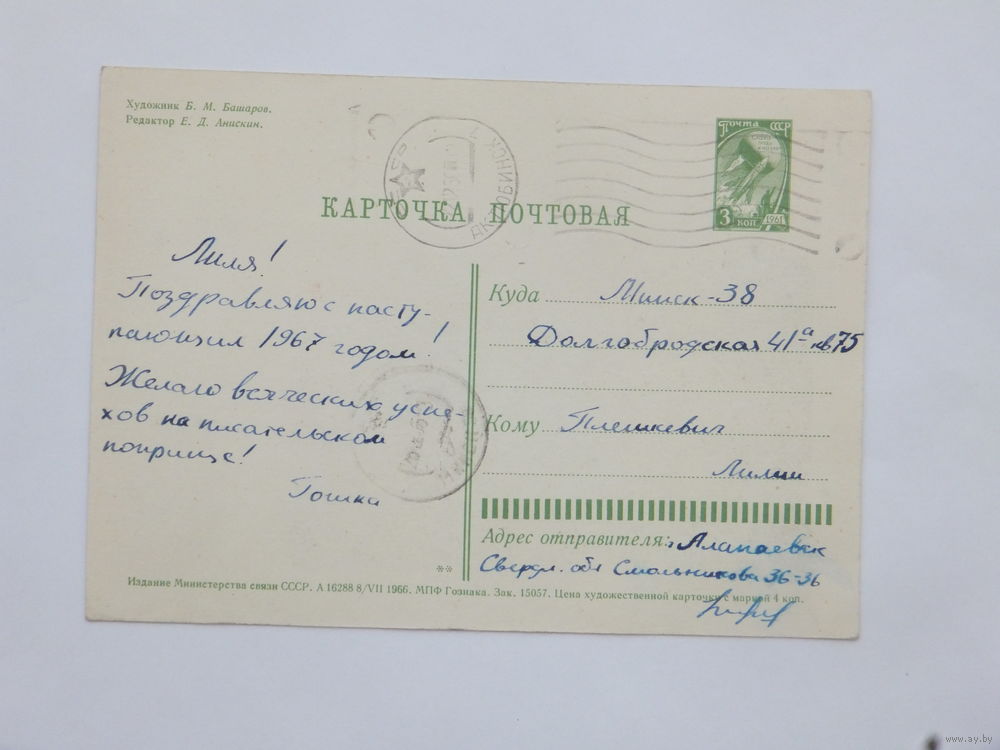 Художник Б. М. Башаров.
Редактор Е. Д. Анискин.
Почта СССР
3 коп
1961
АКТЮБИНСК
КАРТОЧКА ПОЧТОВАЯ
Лиля!
Поздравляю с насту-
пающим 1967 годом!
Желаю всяческих успе-
хов на писательском
поприще!
Гошка
Куда Минск-38
Долгобродская 41а кв 75
Кому Плешкевич
Лилии
Адрес отправителя: г Алапаевск
Свердл. обл Смольникова 36-36
**
Издание Министерства связи СССР. А 16288 8/VII 1966. МПФ Гознака. Зак. 15057. Цена художественной карточки с маркой 4 коп.
www.ay.by